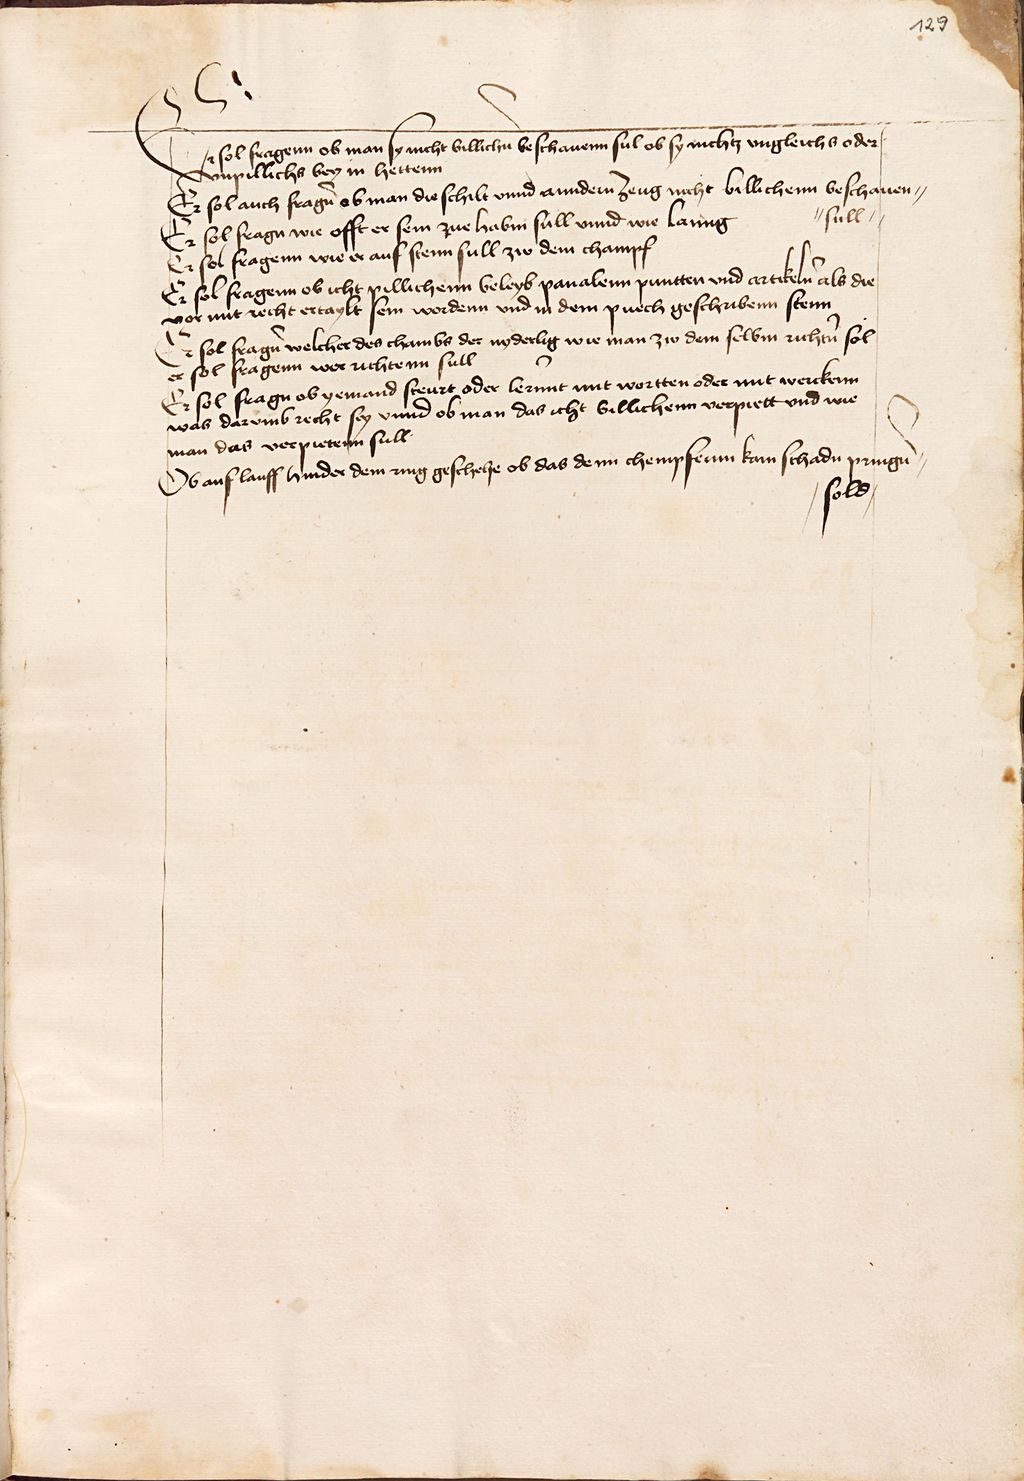 129
Er sol fragenn ob man sy nicht billichn̄ beschauenn sul ob sy nichtz ungleichs oder
unpillichs bey in hettenn
Er sol auch fragn̄ ob man die schilt unnd anndern Zeug nicht billichenn beschauen
Er sol fragn wie offt er sein zue habm sull unnd wie lanng // sull //
Er sol fragenn wie er auf stenn sull zw dem champf
Er sol fragenn ob icht pillichenn beleyb panalenn puntten und artikeln̄ als die
vor mit recht ertaylt sein wordenn und in dem puech geschribenn stenn
Er sol fragn̄ welcher des chambs der nyderlig wie man zw dem selbm richtn̄ sol
er sol fragenn wer richtenn sull
Er sol fragn ob yemand steurt oder lernnt mit wortten oder mit werckenn
was darumb recht sey unnd ob man das icht billichenn verpiett und wie
man das verpietenn sull
Ob auf lauff hinder dem ring geschehe ob das denn chempfenn kain schadn pringn̄
/ sold /